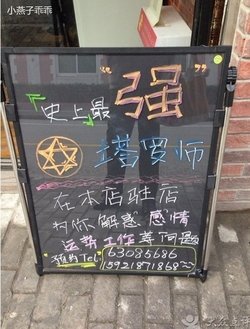 小燕子乖乖
史上最“强”
塔罗师
在本店驻店
为你解惑 感情
运势 工作 等问题
预约Tel: 63085686
15921871868~
大众点评